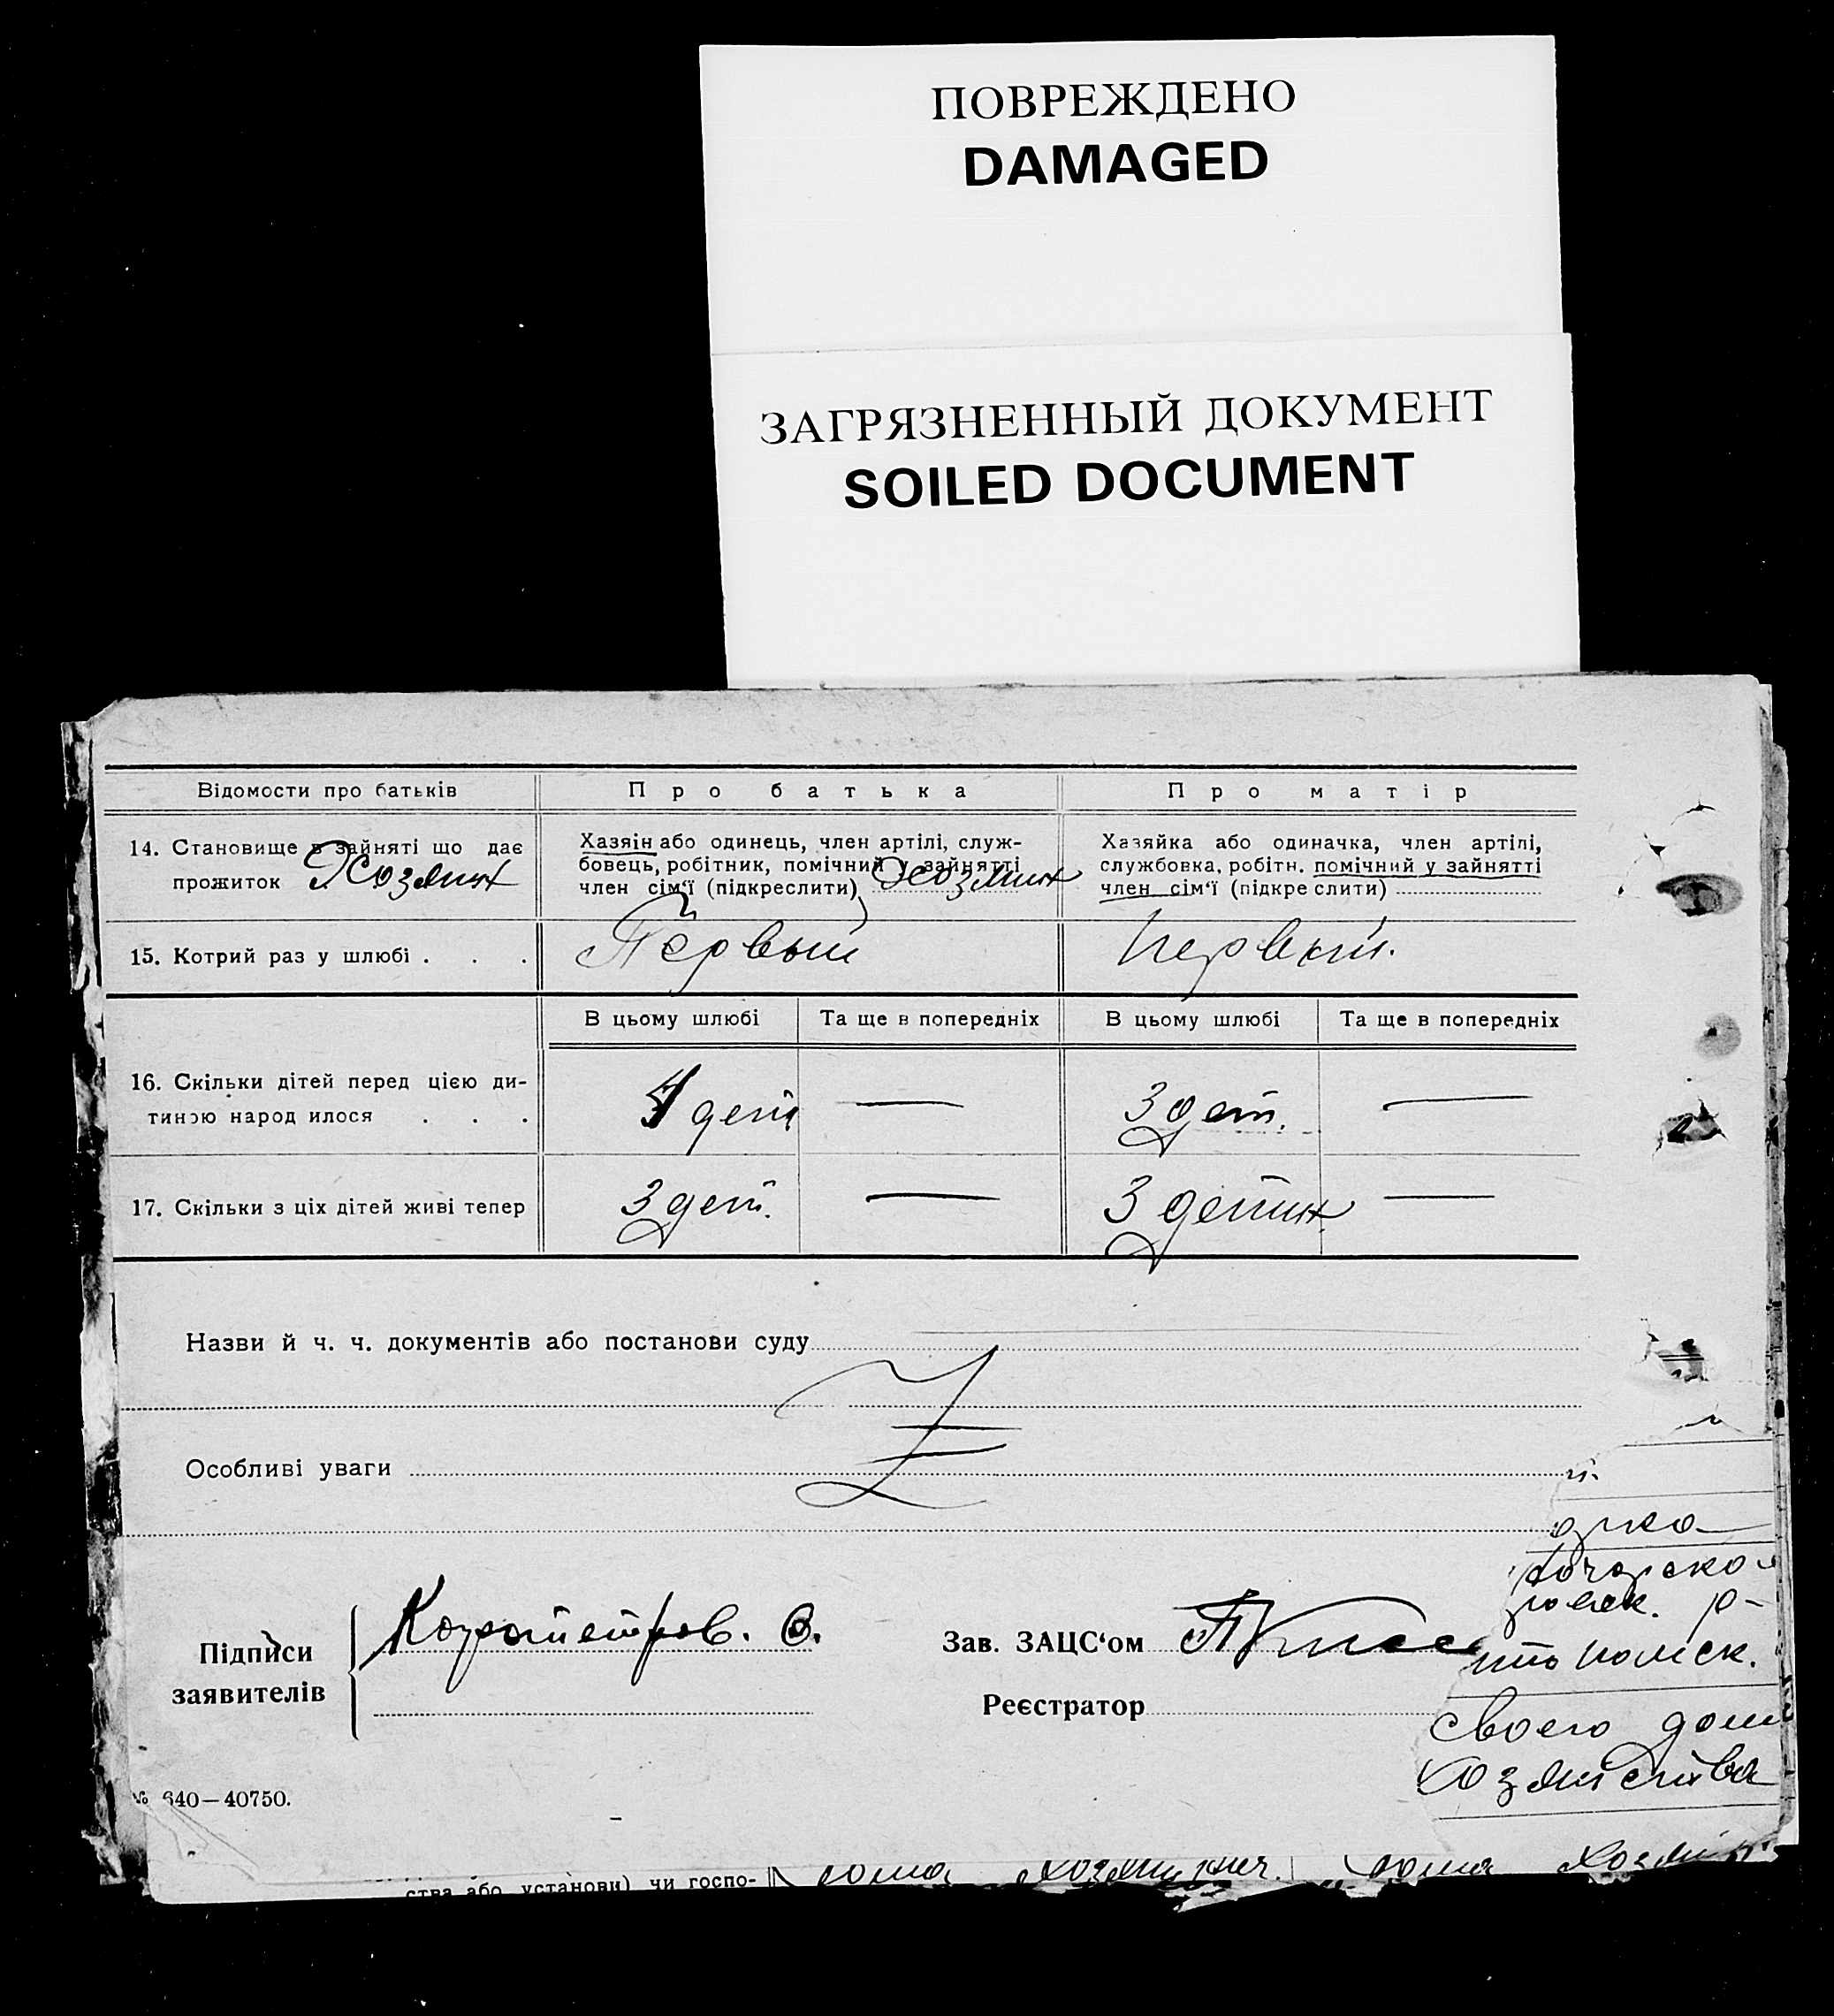 ПОВРЕЖДЕНО
DAMAGED
ЗАГРЯЗНЕННЫЙ ДОКУМЕНТ
SOILED DOCUMENT
Відомости про батьків
Про батька
Про матір
14. Становище в зайняті що дає
прожиток Хозяин
Хазяін або одинець, член артілі, служ-
бовець, робітник, помічний у зайнятті
член сім‘ї (підкреслити) Хозяин
Хазяйка або одиначка, член артілі,
службовка, робітн. помічний у зайнятті
член сім‘ї (підкреслити)
15. Котрий раз у шлюбі . . .
Первый
Первый.
В цьому шлюбі
Та ще в попередніх
В цьому шлюбі
Та ще в попередніх
16. Скільки дітей перед цією ди-
тиною народилося . . .
4 дети
—
3 дет.
—
17. Скільки з ціх дітей живі тепер
3 дет.
—
3 детин
—
Назви й ч. ч. документів або постанови суду
Особливі уваги
Підписи
заявителів
Зав. ЗАЦС‘ом
Реєстратор
своего дом
хозяйства
№ 640—40750.
ства або установи) чи госпо-